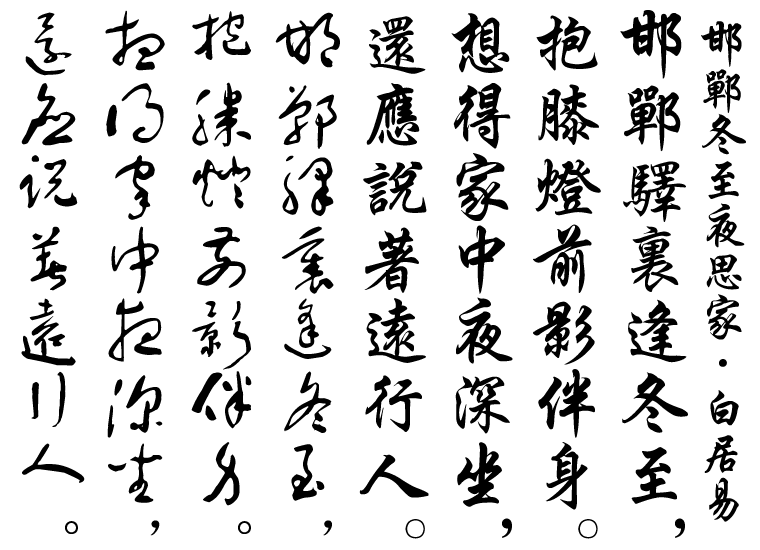 邯鄲冬至夜思家・白居易
邯鄲驛裏逢冬至，
抱膝燈前影伴身。
想得家中夜深坐，
還應說著遠行人。
邯鄲驛裏逢冬至，
抱膝燈前影伴身。
想得家中夜深坐，
還應說著遠行人。